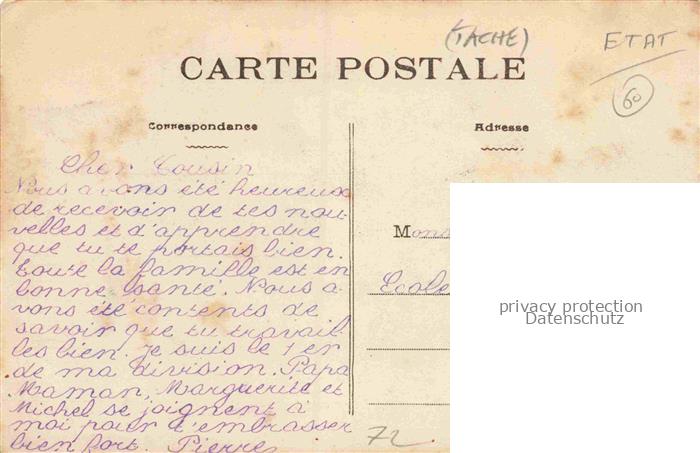 (TACHE)
ETAT
60
CARTE POSTALE
Correspondance
Adresse
Cher Cousin
Nous avons été heureux
de recevoir de tes nou-
velles et d'apprendre
que tu te portais bien.
Toute la famille est en
bonne santé. Nous a-
vons été contents de
savoir que tu travail
les bien. Je suis le 1er
de ma division. Papa
Maman, Marguerite et
Michel se joignent à
moi pour t'embrasser
bien fort. Pierre
Mons
Ecole
privacy protection
Datenschutz
72